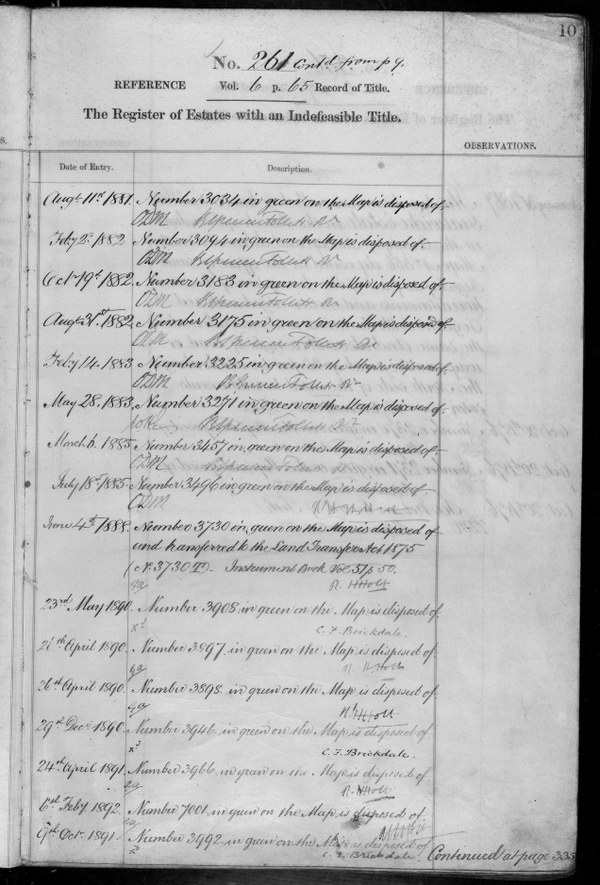 10
No. 261 Contd from pg.
REFERENCE Vol. 6 p. 65 Record of Title.
The Register of Estates with an Indefeasible Title.
OBSERVATIONS.
S.
Date of Entry. Description.
Augt 11th 1881. Number 3034 in green on the Map is disposed of
CDM
Feby 2d 1882. Number 3094 in green on the Map is disposed of
CDM
Octr 19th 1882. Number 3183 in green on the Map is disposed of
CDM
Augt 31st 1882. Number 3175 in green on the Map is disposed of
CDM
Feby 14. 1883 Number 3225 in green on the Map is disposed of
CDM
May 28. 1883. Number 3271 in green on the Map is disposed of
March 6. 1885 Number 3457 in green on the Map is disposed of
CDM
July 18th 1885 Number 3496 in green on the Map is disposed of
CDM R H Holt
June 4th 1888. Number 3730 in green on the Map is disposed of
and transferred to the Land Transfer Act 1875
(No. 3730 TD. Instrument Book Vol 51 p 50.
R. H Holt
23rd May 1890. Number 3908 in green on the Map is disposed of
C. F. Brickdale.
26th April 1890. Number 3897 in green on the Map is disposed of
R. H Holt
26th April 1890. Number 3898 in green on the Map is disposed of
R. H Holt
29th Decr 1890. Number 3946 in green on the Map is disposed of
C. F. Brickdale.
24th April 1891. Number 3966 in green on the Map is disposed of
R. H Holt
6th Feby 1892. Number 7001 in green on the Map is disposed of
R H Holt
9th Oct. 1891. Number 3992 in green on the Map is disposed of
C. F. Brickdale Continued at page 335